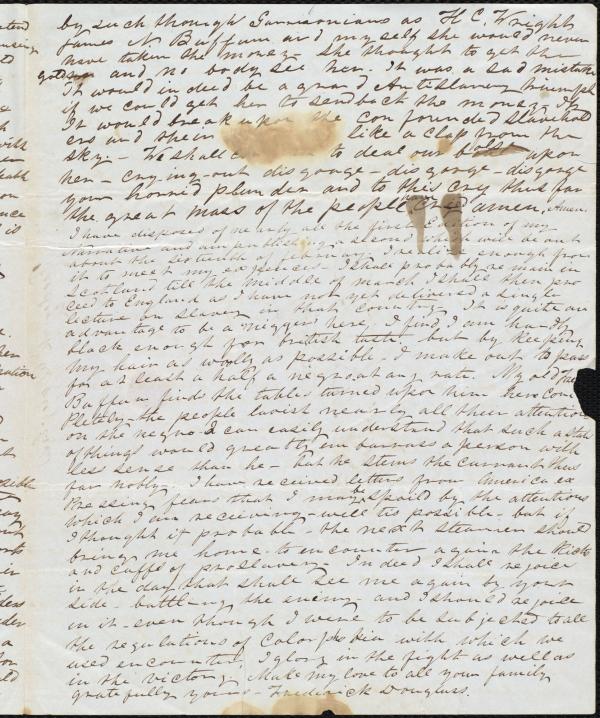 by such thorough Garrisonians as H C. Wright
James N. Buffum and myself she would never
have taken the money - she thought to get the
gold and no body see her. It was a sad mistake
It would indeed be a grand Antislavery triumph
if we could get her to send back the money.
It would break upon the confounded slavehold
ers and their like a clap from the
sky - We shall to deal our blows upon
her - crying out disgorge - disgorge - disgorge
your horrid plunder and to this cry thus far
the great mass of the people have cried amen, Amen.
I have disposed of nearly all the first edition of my
Narrative and am publishing a second which will be out
about the sixteenth of february. I realize enough from
it to meet my expences. I shall probably remain in
Scotland till the middle of march I shall then pro
ceed to England as I have not yet delivered a single
lecture on slavery in that country. It is quite an
advantage to be a nigger here. I find I am hardly
black enough for british taste. but by keeping
my hair as wooly as possible - I make out to pass
for at least a half a negro at any rate. My old friend
Buffum finds the tables turned upon him here com
pletely - the people lavish nearly all their attention
on the negro. I can easily understand that such a state
of things would greatly imbarrass a person with
less sense than he - but he stems the currant thus
far nobly. I have received letters from America ex
pressing fears that I may be spoiled by the attentions
which I am recieving - will tis possible - but if
I thought it probable the next steamer should
bring me home - to encounter again the Kicks
and cuffs of proslavery. Indeed I shall rejoice
in the day that shall see me again by your
side - battling the enemy - and I should rejoice
in it - even though I were to be subjected to all
the regulations of colorphobia with which we
used encounter. I glory in the fight as well as
in the victory. Make my love to all your family
gratefully yours - Frederick Douglass.